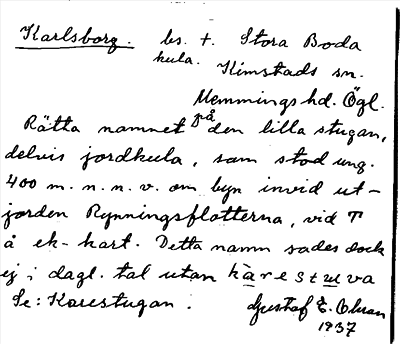 Karlsborg. bs. t. Stora Boda
kula. Kimstads sn.
Memmings hd. Ögl.
Rätta namnet på den lilla stugan,
delvis jordkula, som stod ung.
400 m. n. n. v. om byn invid ut-
jorden Rynningsflotterna, vid T
å ek-kart. Detta namn sades dock
ej i dagl. tal utan kärestuva
Se: Karestugan. Gustaf E. Ohran
1937